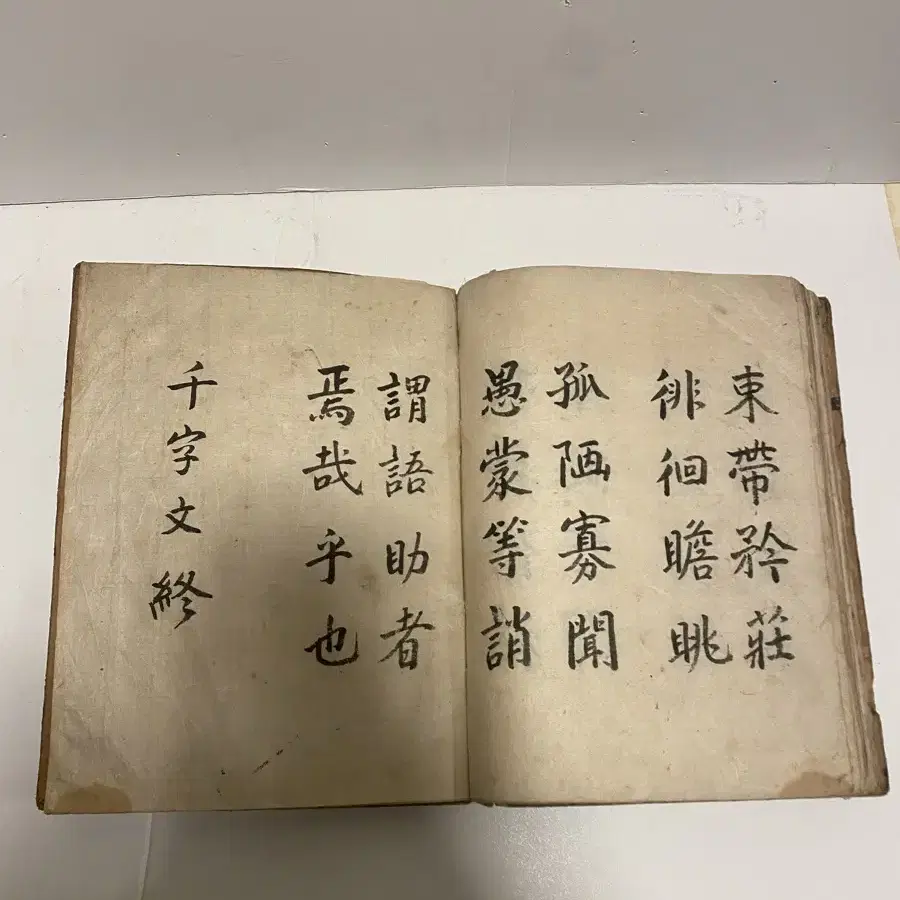 東帶矜莊
徘徊瞻眺
孤陋寡聞
愚蒙等誚
謂語助者
焉哉乎也
千字文終